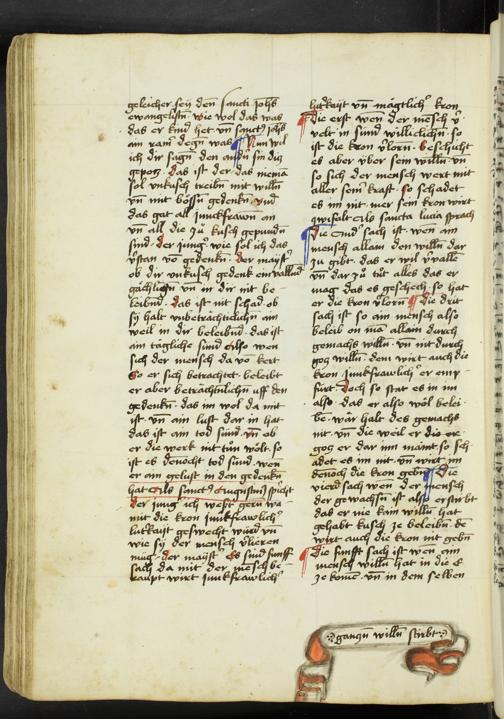 geleicher sey den sanct Johs
ewangelistn wie wol das was
das er kind het vn sanct Johs
ain rain degn was Nun wil
ich dir sagn den andn sin dis
gepos das ist der das niema
sol unkusch treibn mit willn
vn mit bössn gedenkn vnd
das gat all junckfrawn an
vn all die zu kusch gepundn
sind der jung wie sol ich das
vstan vo gedenkn der mayst
ob dir vnkusch gedenk ein valland
gächlichn vn in dir nit be
leibnd das ist nit schad ob
sy halt vnbeträchtlichn am
weil in dir beleibnd das ist
ain tägliche sund Also wen
sich der mensch da vo kert
So er sich betrachtet beleibt
er aber beträchtnlichn uff den
gedenkn das im wol da mit
ist vn ain lust dar in hat
das ist ain tod sund vn ob
er die werk nit tun wölt so
ist es denocht tod sund wen
er ain gelust in den gedenkn
hat Als sanct Augustins spricht
der jung ich west gern wa
mit die kron junkfrawlich
lutkait geswecht wurd vn
wie sy der mensch vlieren
mug der mayst Es sind funff
sach da mit der mensch be
raupt wirt junkfrawlich
lutkayt vn mägtlich kron
die erst wen der mensch v
velt in sund willicklichn so
ist die kron vlorn beschicht
es aber vber sein willn vn
so sich der mensch wert mit
aller seim kraft so schadet
es im nit mer sein kron wirt
zwifalt Als sancta lucia sprach
Die and sach ist wen ain
mensch allain den willn dar
zu gibt das er wil vvalle
vn dar zu tut alles das er
mag das es geschech so hat
er die kron vlorn die drit
sach ist so ain mensch also
beleib on ma allain durch
gemachs willn vn nit durch
gog willn dem wirt auch die
kron junkfrawlich er emp
fürt doch so stat es in im
also das er also wöl belei
be wär halt des gemachs
nit vn die weil er die ere
gog er dar inn maint so sch
adet es im nit vn wirt im
denoch die kron gebn die
vierd sach wen der mensch
der gewachsn ist also erstirbt
das er nie kain willn hat
gehabt kusch ze beleibn de
wirt auch die kron nit gebn
die funft sach ist wen ain
mensch willn hat in die E
ze komē vn in dem selben
ganczn willn stirbt